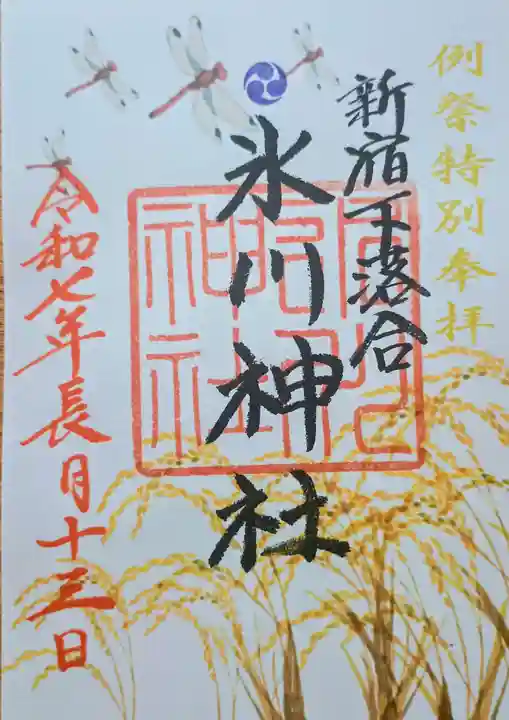 例祭特別奉拝
新宿下落合
氷川神社
令和七年長月十三日